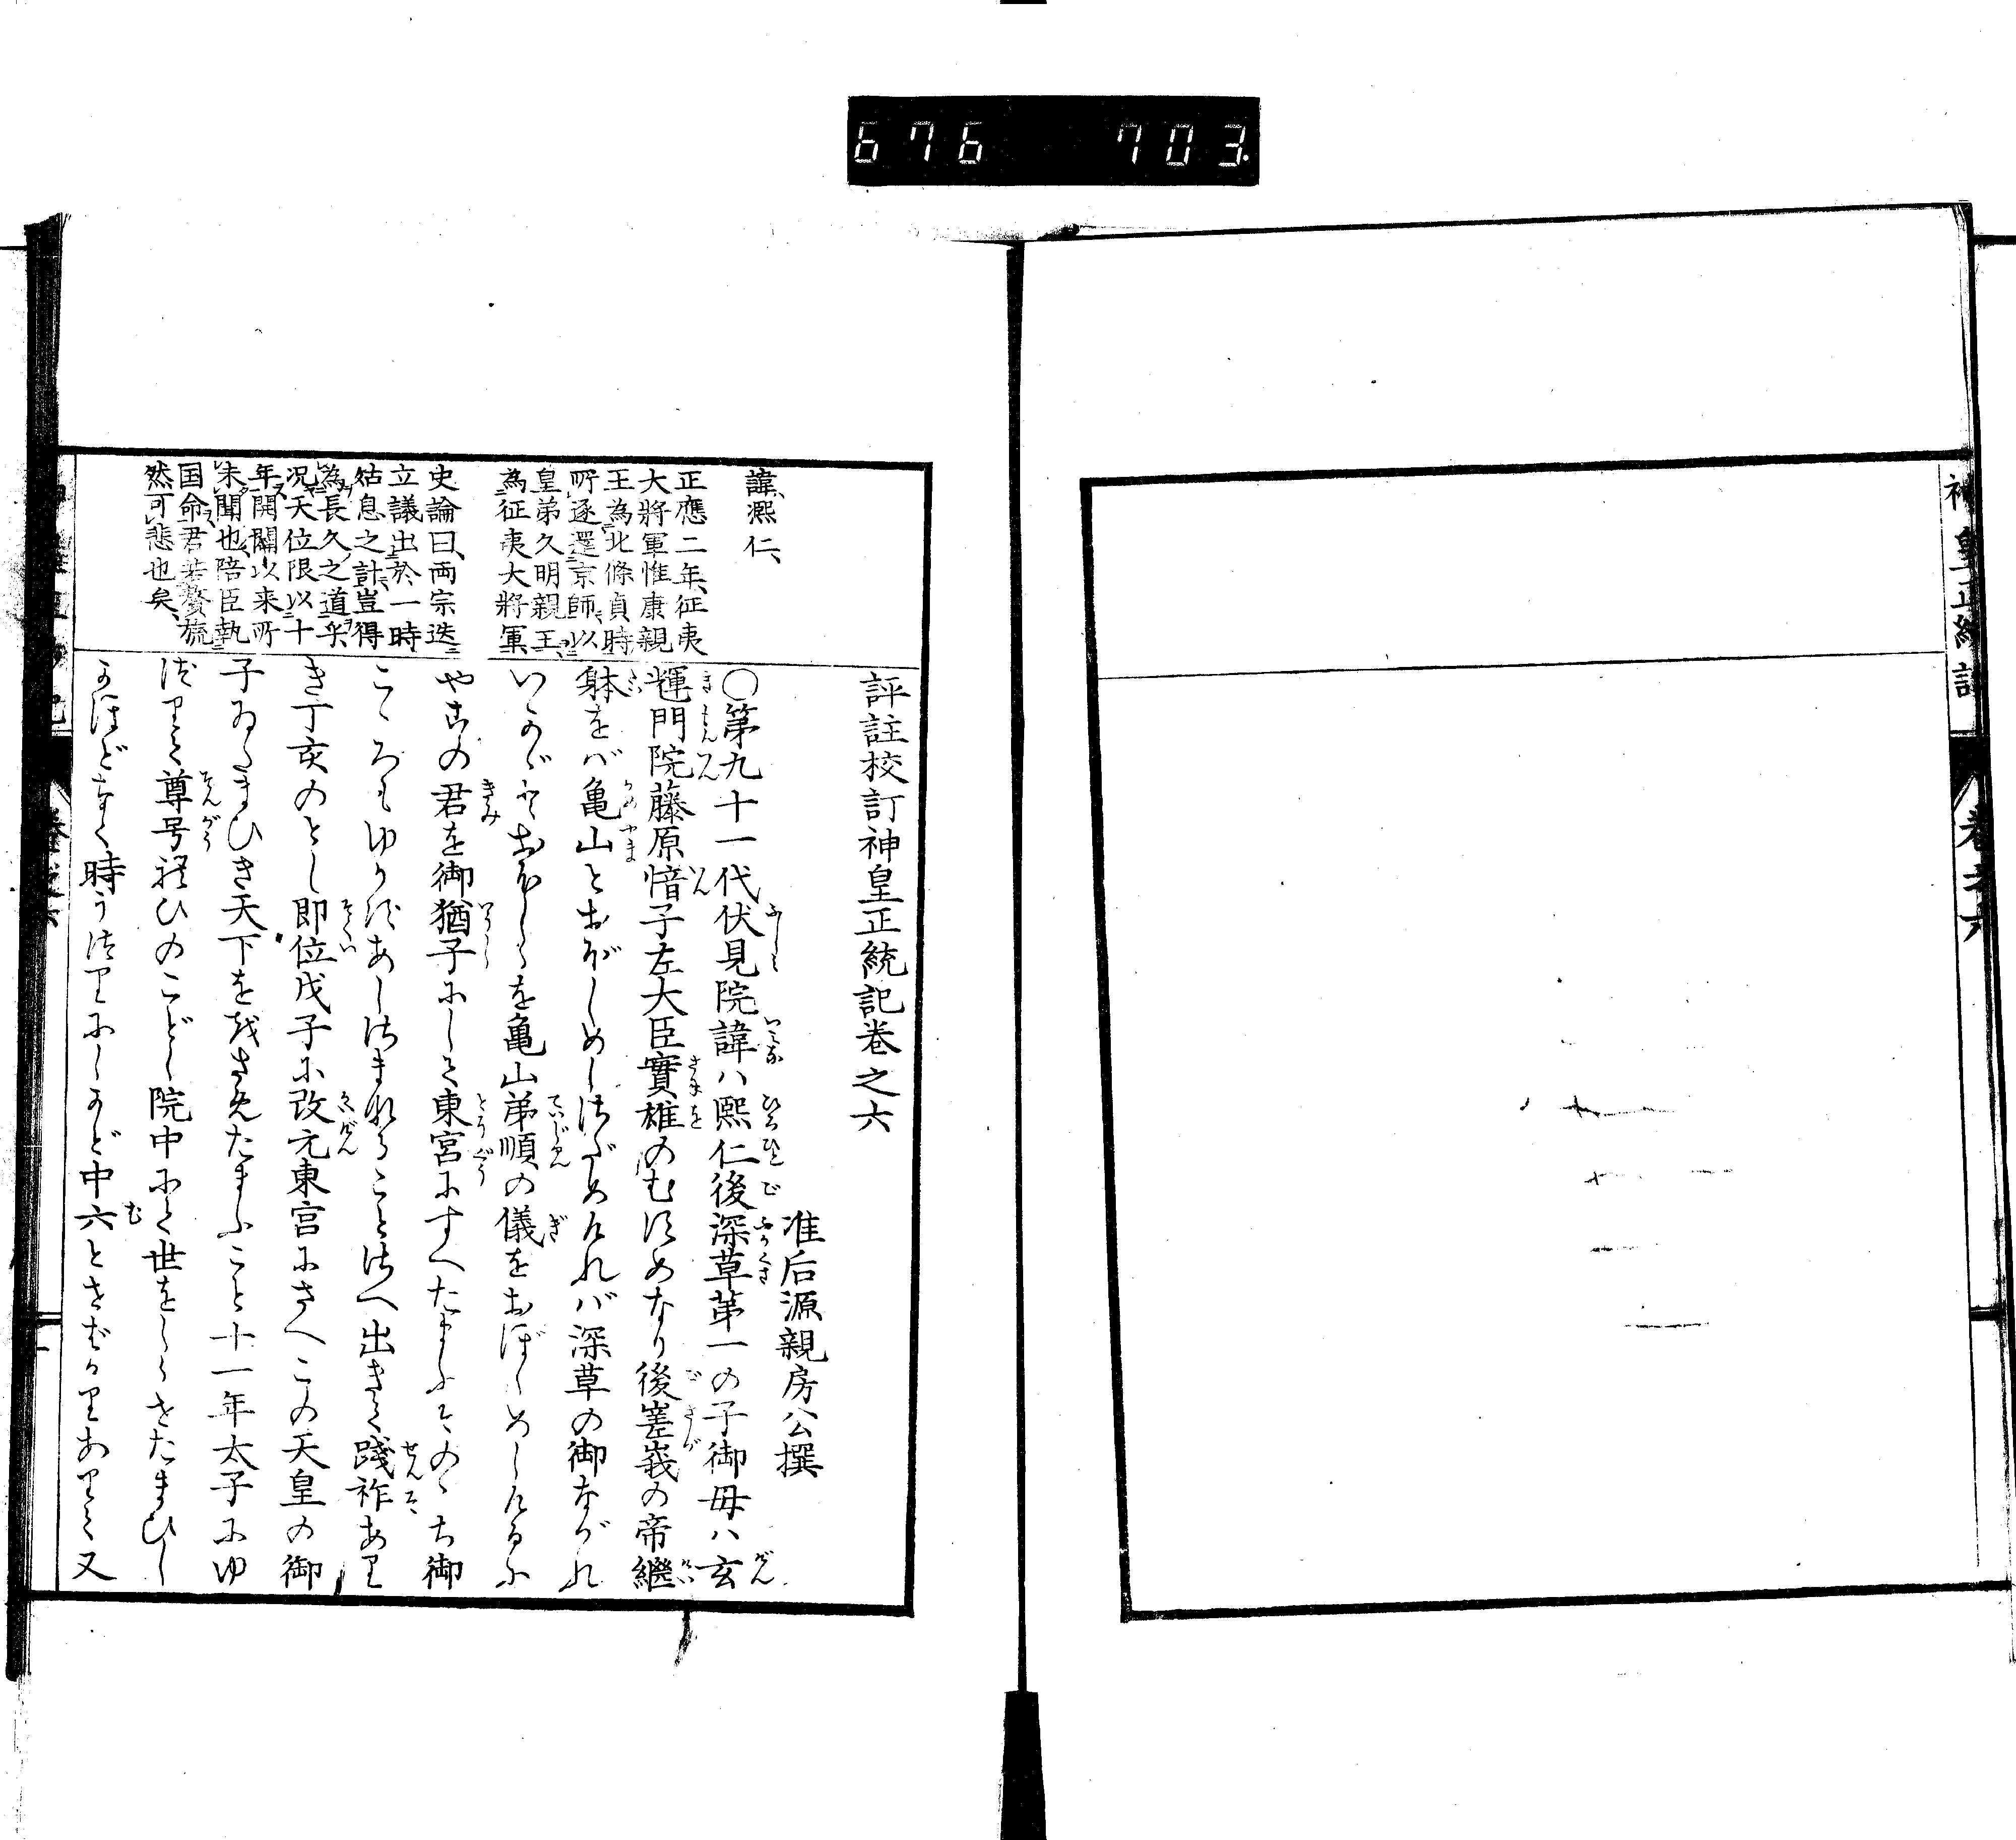 676 703.
神皇正統記 卷之六
評註校訂神皇正統記巻之六
准后源親房公撰
諱、熙仁、
正應二年、征夷
大將軍惟康親
王為北條貞時
所逐還京師以
皇弟久明親王
為征夷大將軍、
史論曰、両宗迭
立議出於一時
姑息之計豈得
為長久之道乎
况天位限以十
年開闢以来所
未聞也、陪臣執
国命君若贅旒
然可悲也矣、
〇第九十一代伏見院諱ハ熙仁後深草第一の子御母ハ玄
輝門院藤原愔子左大臣實雄のむすめなり後嵯峩の帝繼
躰をバ亀山とおぼしめしさだめけれバ深草の御ながれ
いかゞとおぼしゝを亀山弟順の儀をおぼしめしけるに
やこの君を御猶子にして東宮にすへたまふそのゝち御
こゝろもゆかずあしさまなることさへ出きて踐祚あり
き丁亥のとし即位戊子に改元東宮にさへこの天皇の御
子ゐたまひき天下をおさめたまふこと十一年太子にゆ
づりて尊号れいのごとし院中にて世をしらせたまひし
かほどなく時うつりにしかど中六とせばかりありて又